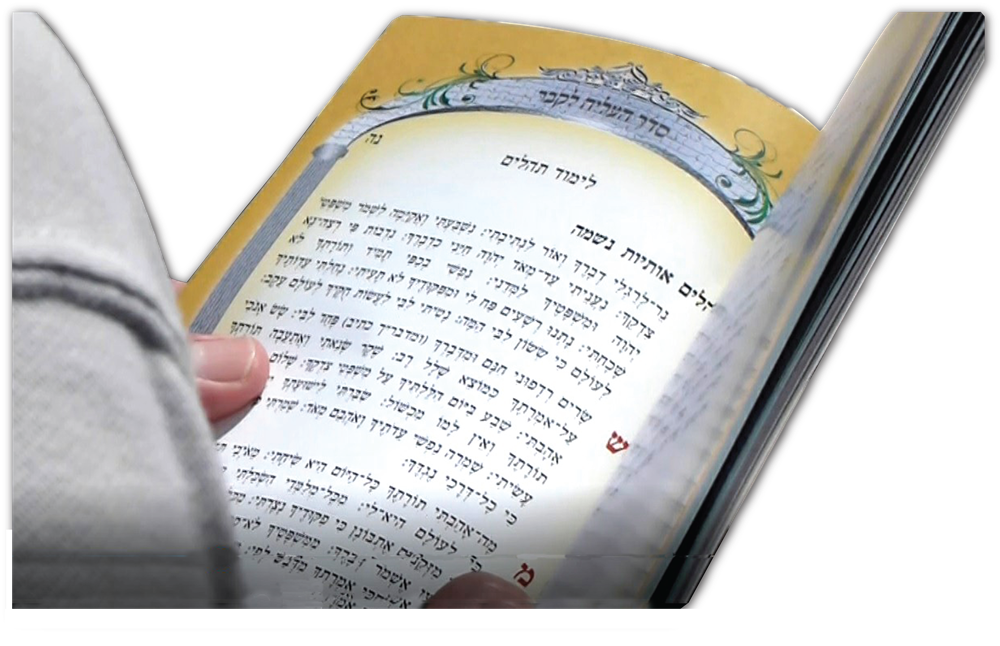 סדר העליה לקבר
נה
לימוד תהלים
אותיות נשמה
נֵר־לְרַגְלִי דְבָרֶךָ וְאוֹר לִנְתִיבָתִי: נִשְׁבַּעְתִּי וָאֲקַיֵּמָה לִשְׁמֹר מִשְׁפְּטֵי
צִדְקֶךָ: נַעֲנֵיתִי עַד־מְאֹד יְהֹוָה חַיֵּנִי כִדְבָרֶךָ: נִדְבוֹת פִּי רְצֵה־נָא
יְהֹוָה וּמִשְׁפָּטֶיךָ לַמְּדֵנִי: נַפְשִׁי בְכַפִּי תָמִיד וְתוֹרָתְךָ לֹא
שָׁכָחְתִּי: נָתְנוּ רְשָׁעִים פַּח לִי וּמִפִּקּוּדֶיךָ לֹא תָעִיתִי: נָחַלְתִּי עֵדְוֹתֶיךָ
לְעוֹלָם כִּי שְׂשׂוֹן לִבִּי הֵמָּה: נָטִיתִי לִבִּי לַעֲשׂוֹת חֻקֶּיךָ לְעוֹלָם עֵקֶב:
ש
שָׂרִים רְדָפוּנִי חִנָּם וּמִדְּבָרְךָ (ומדבריך כתיב) פָּחַד לִבִּי: שָׂשׂ אָנֹכִי
עַל־אִמְרָתֶךָ כְּמוֹצֵא שָׁלָל רָב: שֶׁקֶר שָׂנֵאתִי וַאֲתַעֵבָה תּוֹרָתְךָ
אָהָבְתִּי: שֶׁבַע בַּיּוֹם הִלַּלְתִּיךָ עַל מִשְׁפְּטֵי צִדְקֶךָ: שָׁלוֹם
תוֹרָתֶךָ וְאֵין לָמוֹ מִכְשׁוֹל: שִׂבַּרְתִּי לִישׁוּעָתְךָ
עָשִׂיתִי: שָׁמְרָה נַפְשִׁי עֵדֹתֶיךָ וָאֹהֲבֵם מְאֹד: שָׁמַרְתִּי
כִּי כָל־דְּרָכַי נֶגְדֶּךָ:
מ
מָה־אָהַבְתִּי תוֹרָתֶךָ כָּל־הַיּוֹם הִיא שִׂיחָתִי: מֵאֹיְבַי
לְעוֹלָם הִיא־לִי: מִכָּל־מְלַמְּדַי הִשְׂכַּלְתִּי
מִזְּקֵנִים אֶתְבּוֹנָן כִּי פִקּוּדֶיךָ נָצָרְתִּי:
אֶשְׁמֹר דְּבָרֶךָ: מִמִּשְׁפָּטֶיךָ
אִמְרָתֶךָ מִדְּבַשׁ לְפִי: